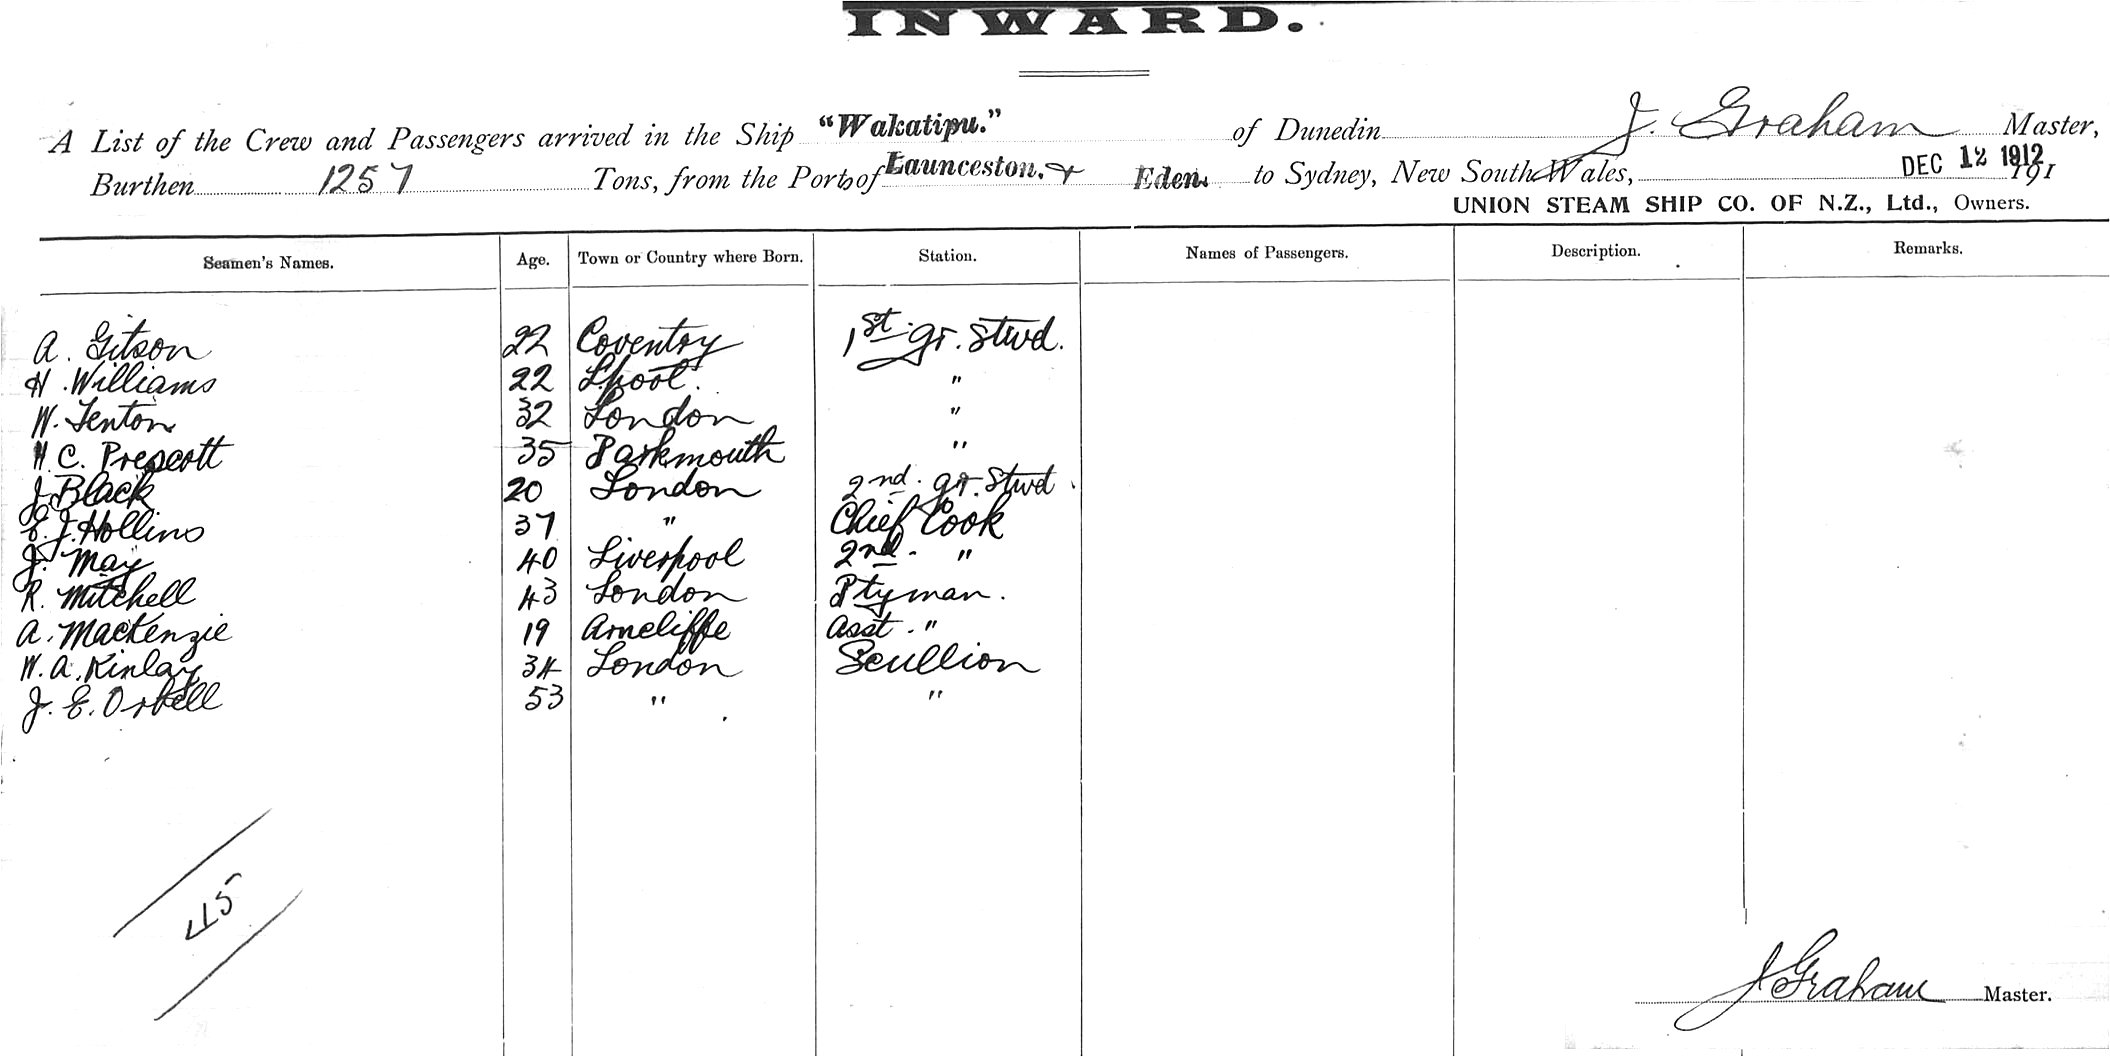 INWARD.
A List of the Crew and Passengers arrived in the Ship "Wakatipu." of Dunedin J. Graham Master,
Burthen 1257 Tons, from the Ports of Launceston. & Eden. to Sydney, New South Wales, DEC 12 1912 191
UNION STEAM SHIP CO. OF N.Z., Ltd., Owners.
Seamen's Names. Age. Town or Country where Born. Station. Names of Passengers. Description. Remarks.
A. Gitson 22 Coventry 1st gr. Stwd.
H. Williams 22 L'pool. "
W. Fenton 32 London "
H. C. Prescott 35 "
J. Black 20 London 2nd. gr. Stwd.
E. J. Hollins 37 " Chief Cook
J. May 40 Liverpool 2nd. "
R. Mitchell 43 London Ptyman.
A. MacKenzie 19 Arncliffe Asst. "
W. A. Kinlay 34 London Scullion
J. E. Orbell 53 " "
45
J Graham Master.